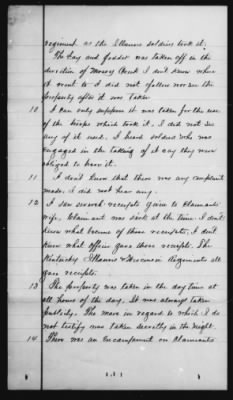 regiment as the Illinois soldiers took it.
The hay and fodder was taken off in the
direction of Creek I don't know where
it went to I did not follow nor see the
property after it was taken
10 I can only suppose it was taken for the use
of the troops which took it. I did not see
any of it used. I heard soldiers who was
engaged in the taking of it say they were
obliged to have it.
11 I don't know that there was any complaint
made, I did not hear any.
12 I saw several receipts given to Claimants
wife, Claimant was sick at the time I don't
know what became of those receipts, I don't
know what officer gave those receipts. The
Kentucky Illinois & Wisconsin Regiments all
gave receipts.
13 The property was taken in the day time at
all hours of the day. It was always taken
publicly. The mare in regard to which I do
not testify was taken secretly in the night.
14 There was an Encampment on Claimants